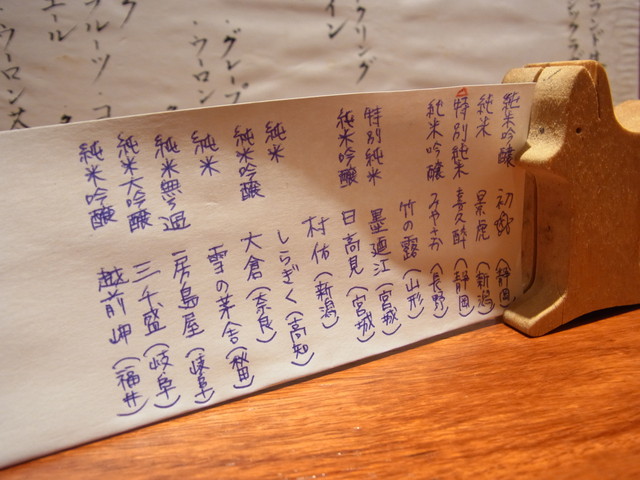 純米吟醸 初亀 (静岡)
純米 景虎 (新潟)
特別純米 喜久酔 (静岡)
純米吟醸 みやさか (長野)
竹の露 (山形)
特別純米 墨廼江 (宮城)
純米吟醸 日高見 (宮城)
村祐 (新潟)
純米 しらぎく (高知)
純米吟醸 大倉 (奈良)
純米 雪の茅舎 (秋田)
純米無ろ過 房島屋 (岐阜)
純米大吟醸 三千盛 (岐阜)
純米吟醸 越前岬 (福井)
クリング
イン
・グレープ
・ウーロン
フルーツ・コ
ク
エール
ウーロン